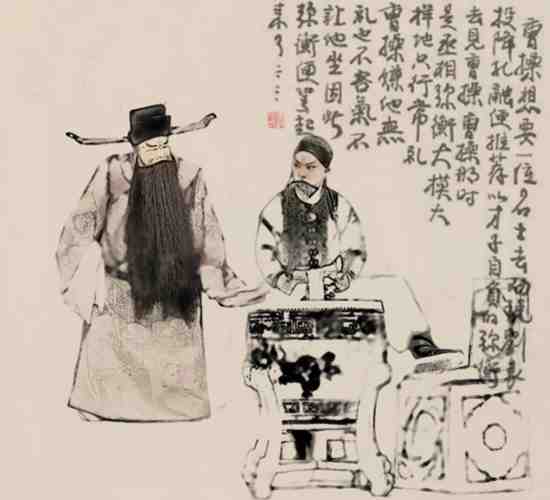 曹操想要一位名士去說劉表
投降孔融便推荐以才子自負的祢衡
去見曹操曹操那时
是丞相祢衡大模大
样地只行常礼
曹操嫌他無
礼也不客氣不
让他坐因此
祢衡便罵起
来了